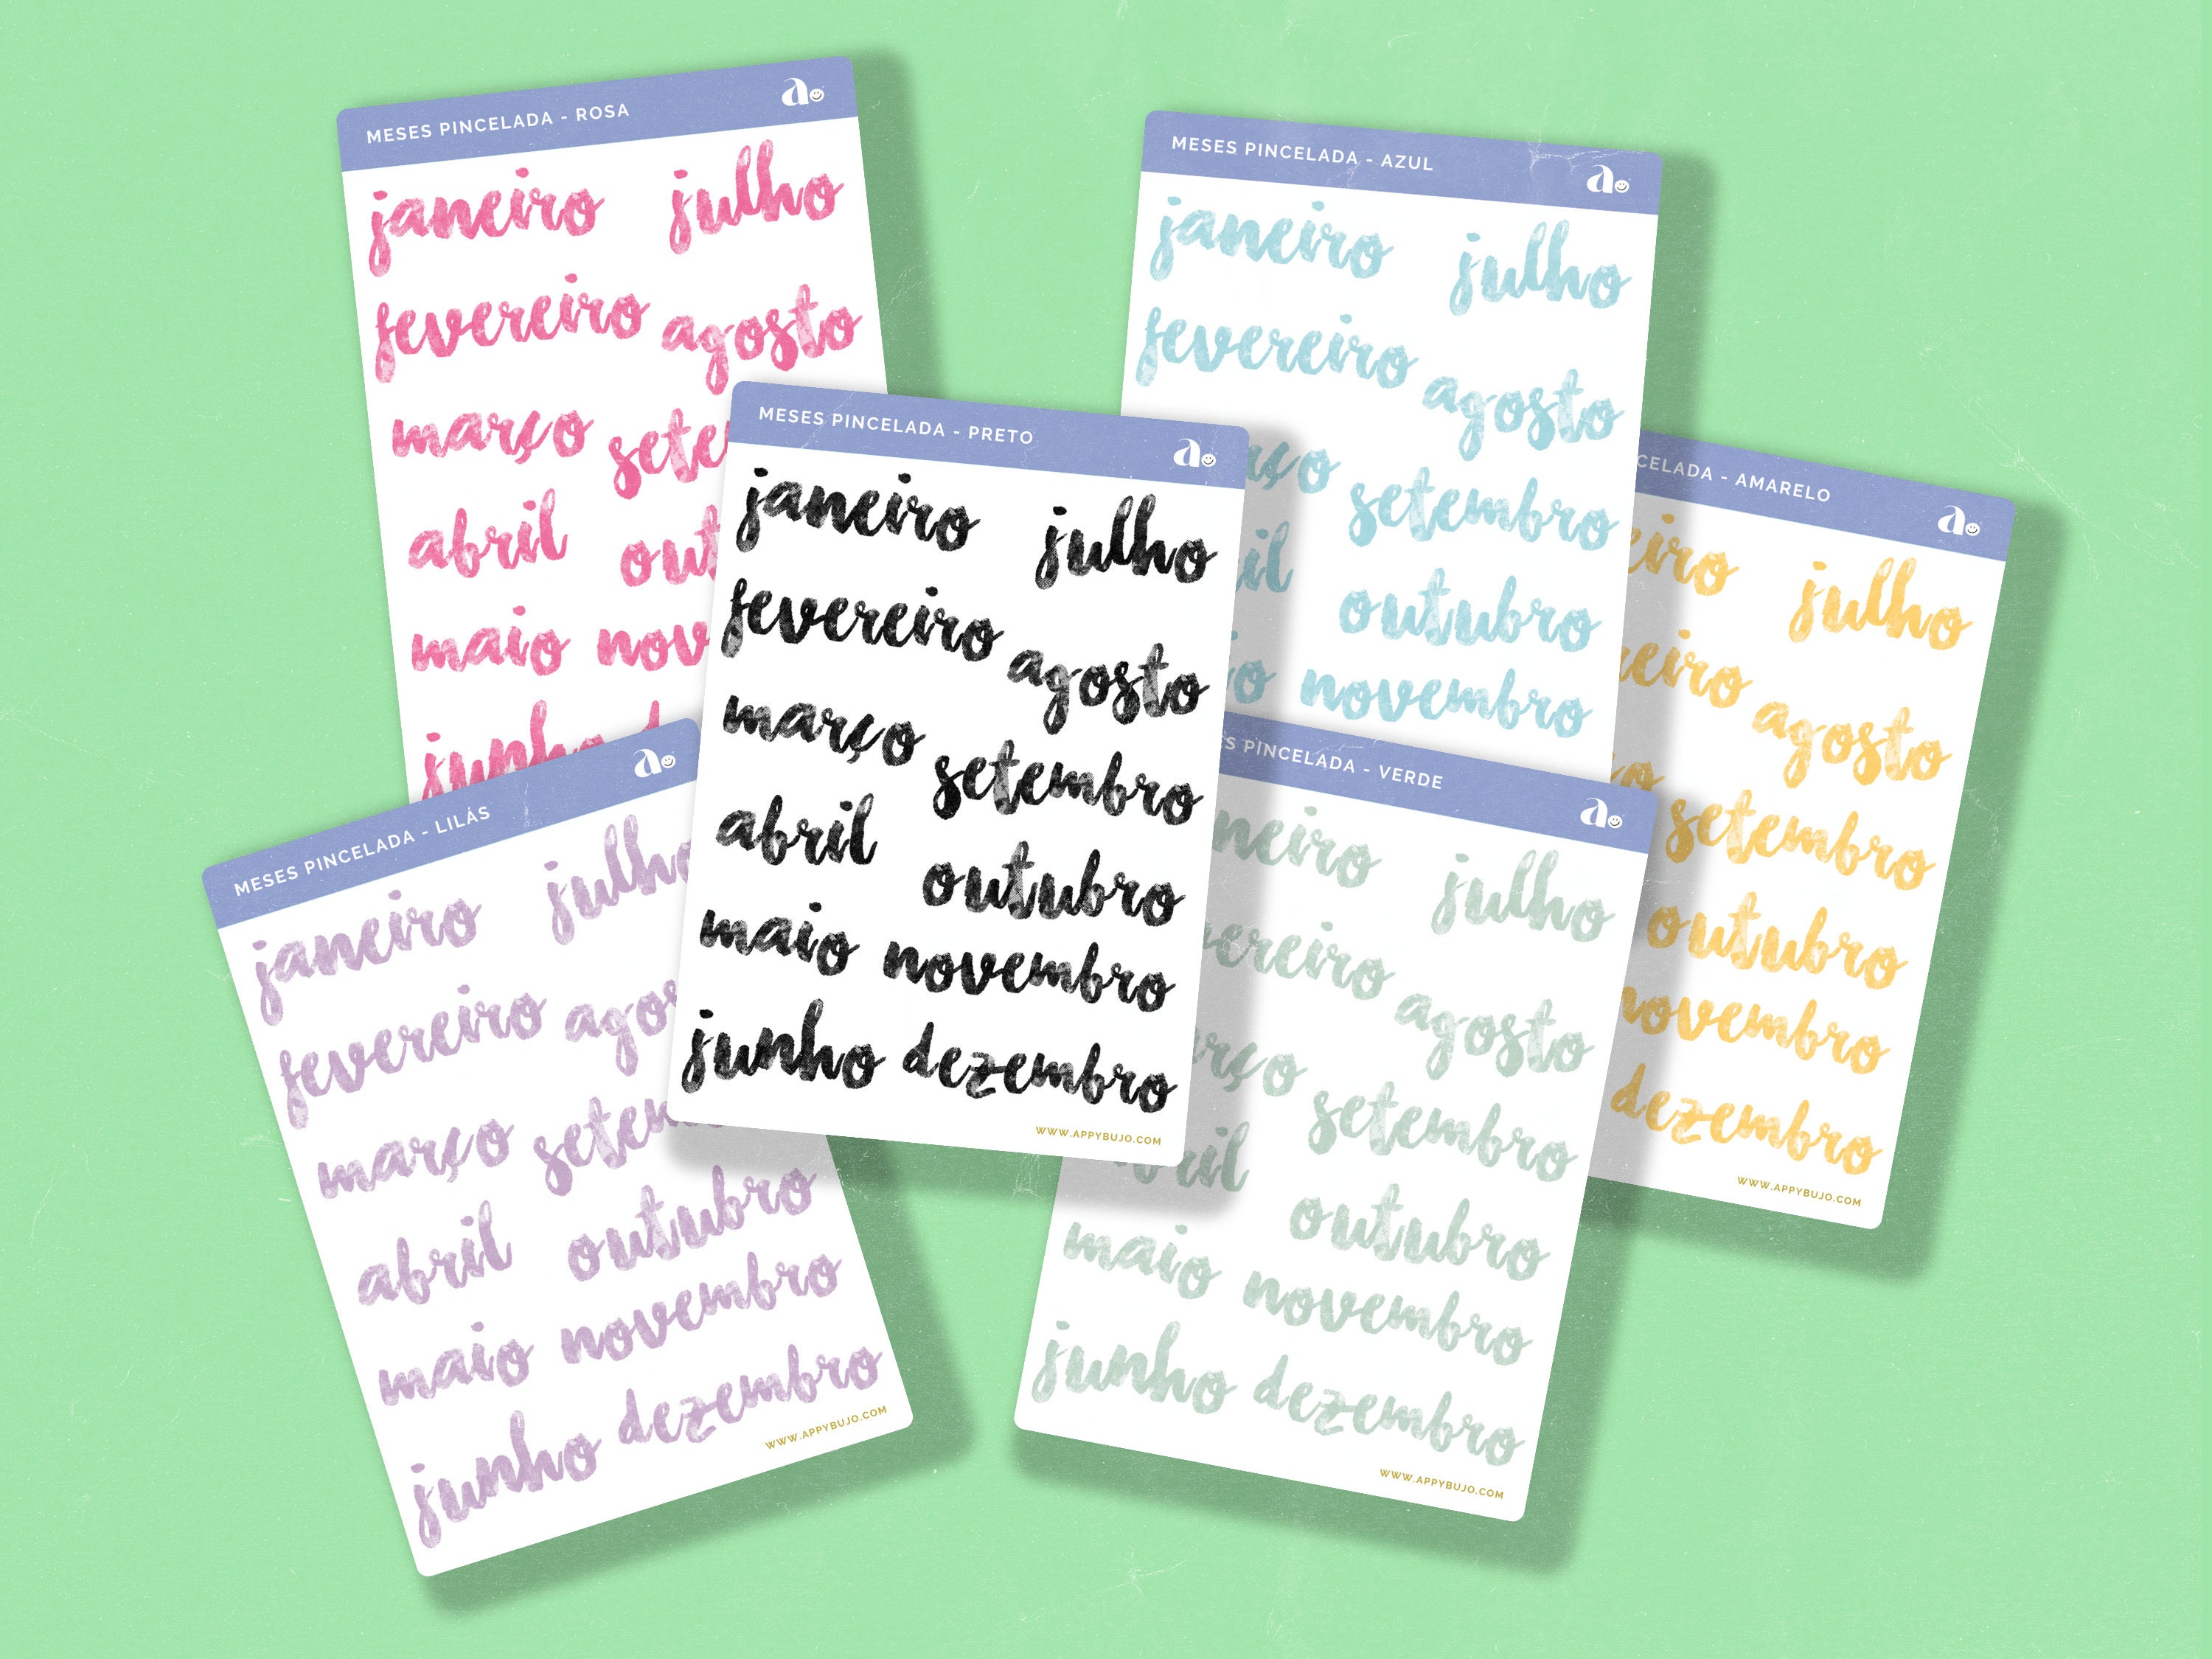 MESES PINCELADA - ROSA
janeiro julho
fevereiro agosto
março sete
abril out
maio nov
junho d
MESES PINCELADA - AZUL
janeiro julho
fevereiro agosto
ço setembro
il outubro
o novembro
CELADA - AMARELO
eiro julho
eiro agosto
o setembro
outubro
novembro
dezembro
WWW.APPYBUJO.COM
MESES PINCELADA - PRETO
janeiro julho
fevereiro agosto
março setembro
abril outubro
maio novembro
junho dezembro
WWW.APPYBUJO.COM
MESES PINCELADA - LILÁS
janeiro julho
fevereiro agos
março setem
abril outubro
maio novembro
junho dezembro
WWW.APPYBUJO.COM
S PINCELADA - VERDE
neiro julho
vereiro agosto
rço setembro
bril outubro
maio novembro
junho dezembro
WWW.APPYBUJO.COM